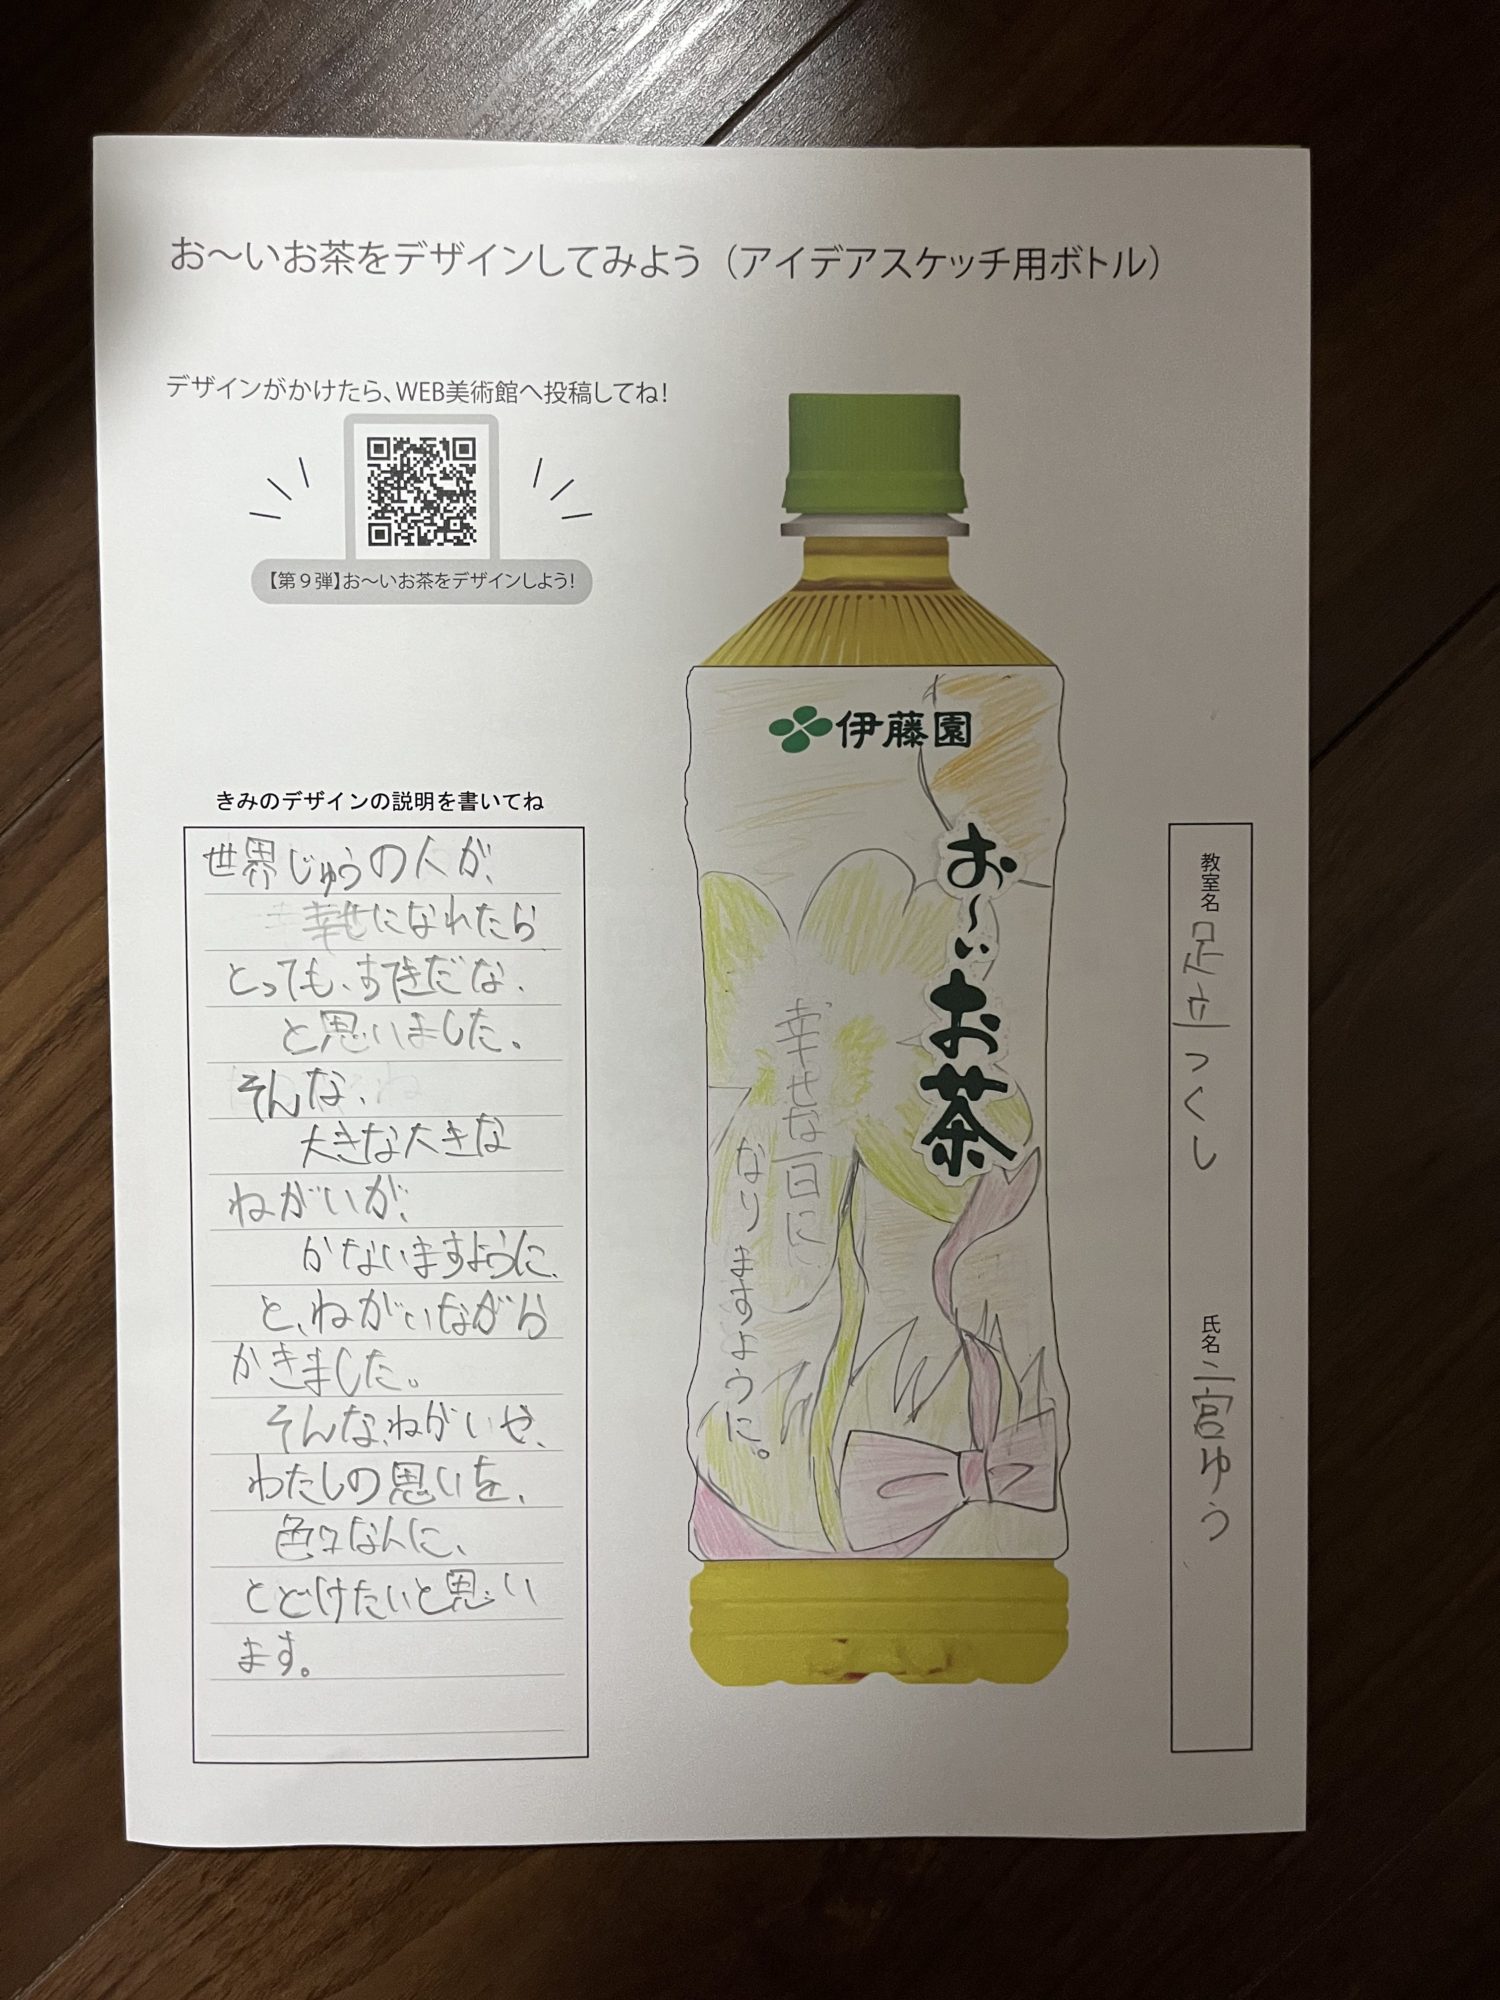 お～いお茶をデザインしてみよう（アイデアスケッチ用ボトル）
デザインがかけたら、WEB美術館へ投稿してね！
【第９弾】お～いお茶をデザインしよう！
きみのデザインの説明を書いてね
世界じゅうの人が、
幸せになれたら
とっても、すてきだな、
と思いました。
そんな、
大きな大きな
ねがいが、
かないますように、
と、ねがいながら
かきました。
そんな、ねがいや、
わたしの思いを、
色々な人に、
とどけたいと思い
ます。
伊藤園
お～いお茶
幸せな一日に
なりますように。
教室名 足立つくし
氏名 二宮ゆう